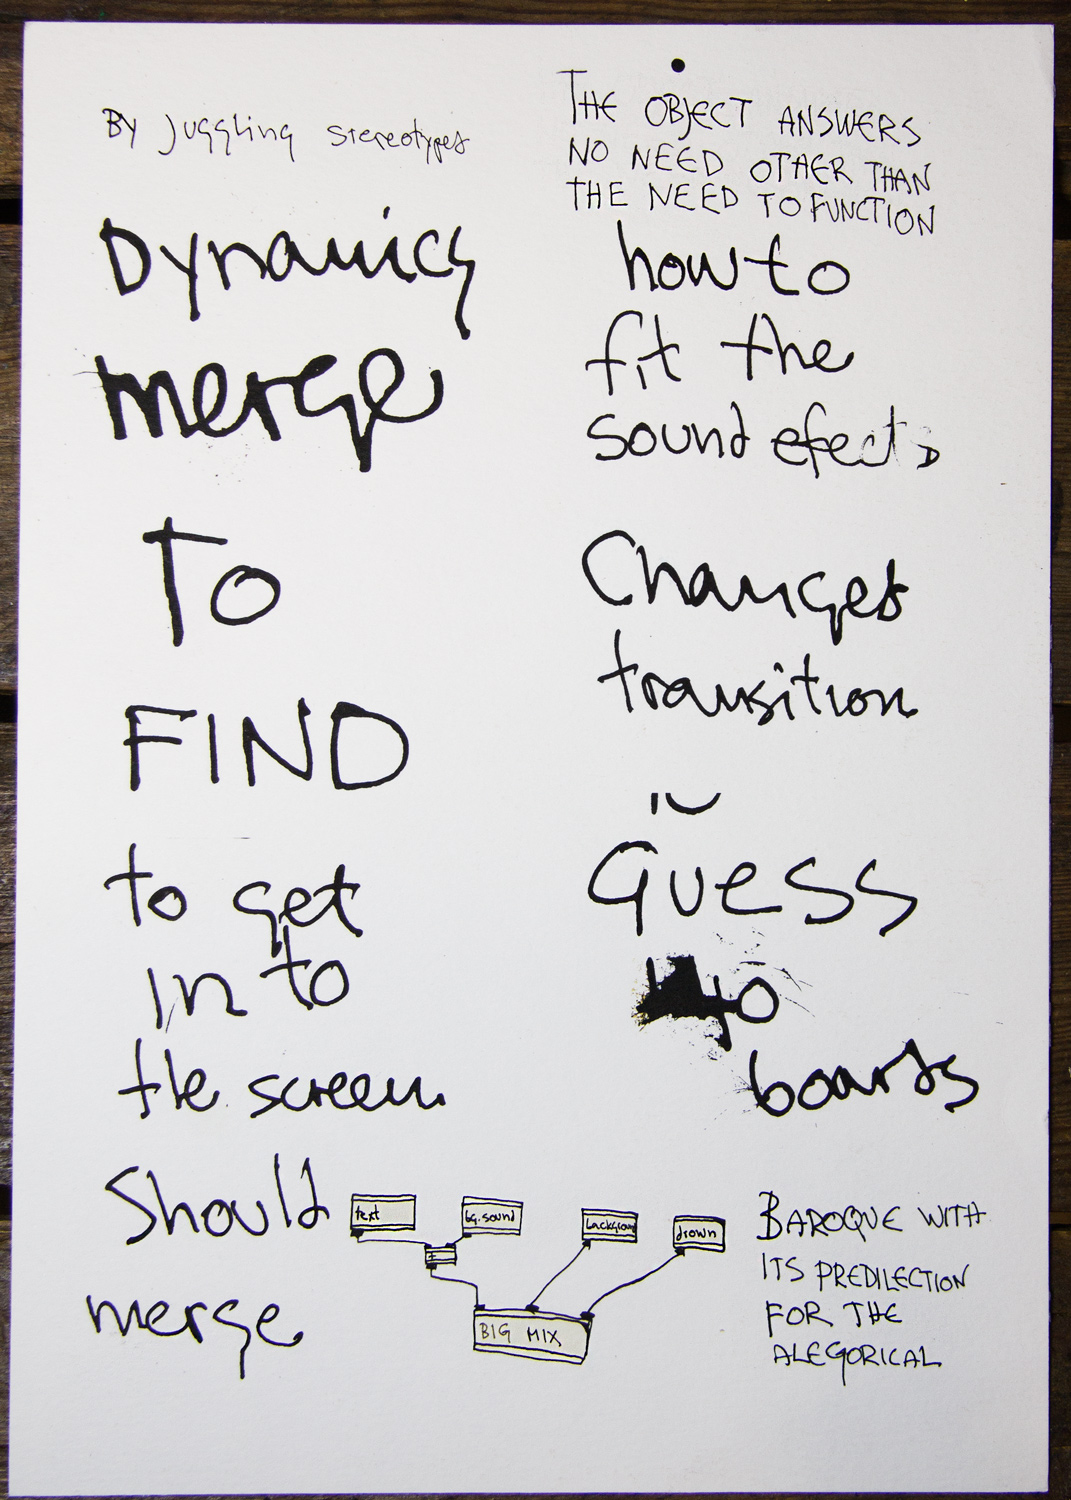 By Juggling stereotypes
Dynamics
merge
To
FIND
to get
in to
the screen
Should
merge
THE OBJECT ANSWERS
NO NEED OTHER THAN
THE NEED TO FUNCTION
how to
fit the
sound efects
Changes
transition
Guess
boards
text
bg.sound
+
backgroun
BIG MIX
BAROQUE WITH
ITS PREDILECTION
FOR THE
ALEGORICAL